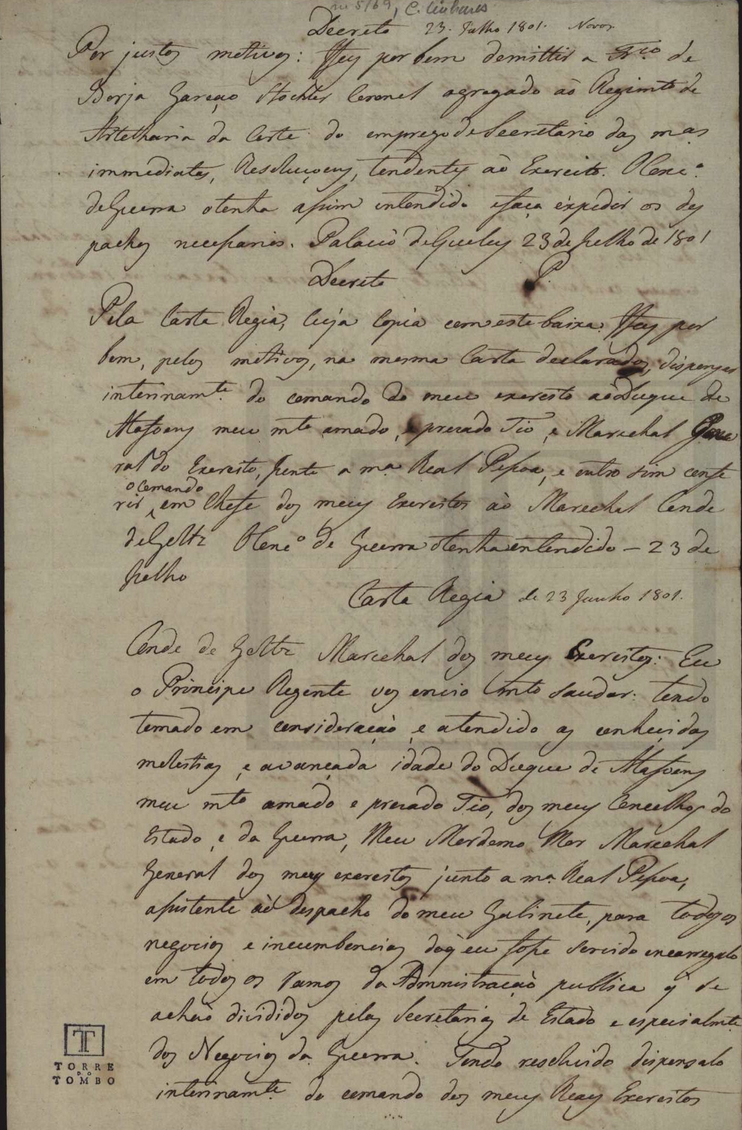 nº 5169, C. Linhares
Decreto 23. Julho 1801. Novos
Por justos motivos: Hey por bem demittir a Fr.co de
Borja Garção Stockler Coronel agregado ao Regimto de
Artelharia da Corte do emprego de Secretario das mas
immediatas, Resoluçoens, tendentes ao Exercito. O Conc.o
de Guerra o tenha assim intendido e faça expedir os des
pachos necessarios. Palacio de Queluz 23 de Julho de 1801
Decreto P.
Pela Carta Regia, cuja copia com este baixa, Hey por
bem, pelos motivos, na mesma Carta declarados, dispensar
interinamte. do comando do meu exercito ao Duque de
Alafoens meu mto amado, e prezado Tio, e Marechal Gene
ral do Exercito, junto a ma Real Pessoa, e outro sim confe
o comando
rir em Chefe dos meus Exercitos ao Marechal Conde
de Goltz O Conc.o de Guerra o tenha entendido — 23 de
Julho
Carta Regia de 23 Junho 1801.
Conde de Goltz Marechal dos meus Exercitos: Eu
o Principe Regente vos envio mto saudar: tendo
tomado em consideração, e atendido as conhecidas
molestias, e avançada idade do Duque de Alafoens
meu mto amado e prezado Tio, dos meus Concelhos do
Estado, e da Guerra, Meu Mordomo Mor Marechal
General dos meus exercitos junto a ma Real Pessoa,
assistente ao despacho do meu Gabinete, para todos os
negocios e incumbencias de q eu fosse servido encarregalo
em todos os ramos da Administração publica q se
achão divididos pelas Secretarias de Estado e especialmte.
dos Negocios da Guerra. Tendo resoluido dispensalo
interinamte. do comando dos meus Reaes Exercitos
TORRE
DO
TOMBO